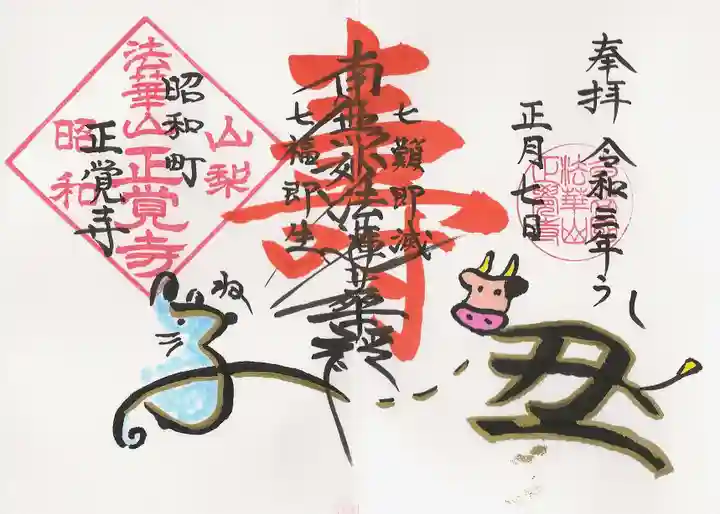 奉拝
令和三年うし
正月七日
法華山
正覚寺
寿
七難即滅
南無妙法蓮華経
七福即生
ね
子
丑
山梨
法華山正覚寺
昭和
昭和町
正覚寺